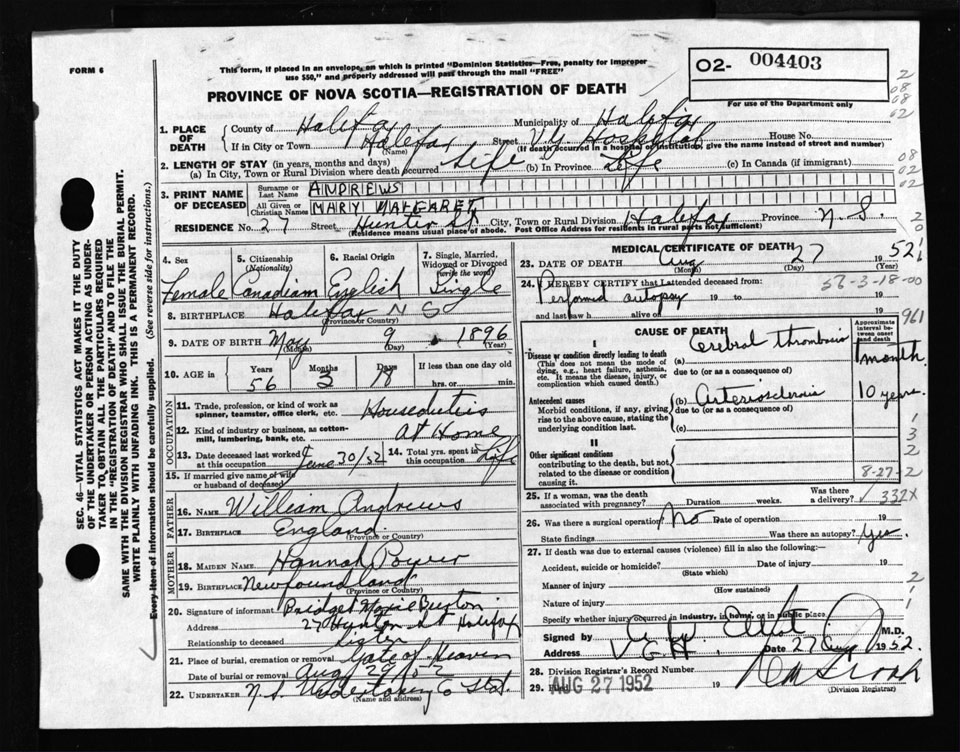 FORM 6
This form, if placed in an envelope, on which is printed "Dominion Statistics—Free, penalty for improper
use $50," and properly addressed will pass through the mail "FREE"
PROVINCE OF NOVA SCOTIA—REGISTRATION OF DEATH
O2- 004403
For use of the Department only
2
08
08
02
1. PLACE OF DEATH
County of Halifax Municipality of Halifax
If in City or Town Halifax Street V.G. Hospital House No.
(Name) (If death occurred in a hospital or institution, give the name instead of street and number)
2. LENGTH OF STAY (in years, months and days)
(a) In City, Town or Rural Division where death occurred Life (b) In Province Life (c) In Canada (if immigrant)
08
02
02
3. PRINT NAME OF DECEASED
Surname or Last Name ANDREWS
All Given or Christian Names MARY MARGARET
RESIDENCE No. 27 Street Hunter St City, Town or Rural Division Halifax Province N.S.
(Residence means usual place of abode. Post Office Address for residents in rural parts not sufficient)
4. Sex Female
5. Citizenship (Nationality) Canadian
6. Racial Origin English
7. Single, Married, Widowed or Divorced (write the word) Single
8. BIRTHPLACE Halifax N S
(Province or Country)
9. DATE OF BIRTH May 9 1896
(Month) (Day) (Year)
10. AGE in Years Months Days If less than one day old
56 3 18 hrs. or min.
OCCUPATION
11. Trade, profession, or kind of work as spinner, teamster, office clerk, etc. Houseduties
12. Kind of industry or business, as cotton-mill, lumbering, bank, etc. At Home
13. Date deceased last worked at this occupation June 30/52
14. Total yrs. spent in this occupation Life
15. If married give name of wife or husband of deceased
FATHER
16. NAME William Andrews
17. BIRTHPLACE England
(Province or Country)
MOTHER
18. MAIDEN NAME Hannah Power
19. BIRTHPLACE Newfoundland
(Province or Country)
20. Signature of informant Bridget Marie Buxton
Address 27 Hunter St Halifax
Relationship to deceased sister
21. Place of burial, cremation or removal Gate of Heaven
Date of burial or removal Aug 29 1952
22. UNDERTAKER N.S. Undertaking Co Ltd.
(Name and address)
MEDICAL CERTIFICATE OF DEATH
23. DATE OF DEATH Aug 27 1952
(Month) (Day) (Year)
24. I HEREBY CERTIFY that I attended deceased from:
Performed autopsy 19 to 19
and last saw h alive on 19
CAUSE OF DEATH
Approximate interval between onset and death
I
Disease or condition directly leading to death (a) Cerebral thrombosis 1 month
(This does not mean the mode of dying, e.g., heart failure, asthenia, etc. It means the disease, injury, or complication which caused death.)
due to (or as a consequence of)
Antecedent causes (b) Arteriosclerosis 10 years.
Morbid conditions, if any, giving rise to the above cause, stating the underlying condition last.
due to (or as a consequence of)
(c)
II
Other significant conditions
contributing to the death, but not related to the disease or condition causing it
8-27-2
25. If a woman, was the death associated with pregnancy? Duration weeks. Was there a delivery? 332X
26. Was there a surgical operation? No Date of operation 19
State findings Was there an autopsy? Yes.
27. If death was due to external causes (violence) fill in also the following:—
Accident, suicide or homicide? Date of injury 19
(State which)
Manner of injury
(How sustained)
Nature of injury
Specify whether injury occurred in industry, in home, or in public place
Signed by M.D.
Address V.G.H. Date 27 Aug 1952.
28. Division Registrar's Record Number
29. Filed AUG 27 1952 19
(Division Registrar)
SEC. 46—VITAL STATISTICS ACT MAKES IT THE DUTY
OF THE UNDERTAKER OR PERSON ACTING AS UNDER-
TAKER TO OBTAIN ALL THE PARTICULARS REQUIRED
IN THE "REGISTRATION OF DEATH" AND TO FILE THE
SAME WITH THE DIVISION REGISTRAR WHO SHALL ISSUE THE BURIAL PERMIT.
WRITE PLAINLY WITH UNFADING INK. THIS IS A PERMANENT RECORD.
Every item of information should be carefully supplied. (See reverse side for instructions.)